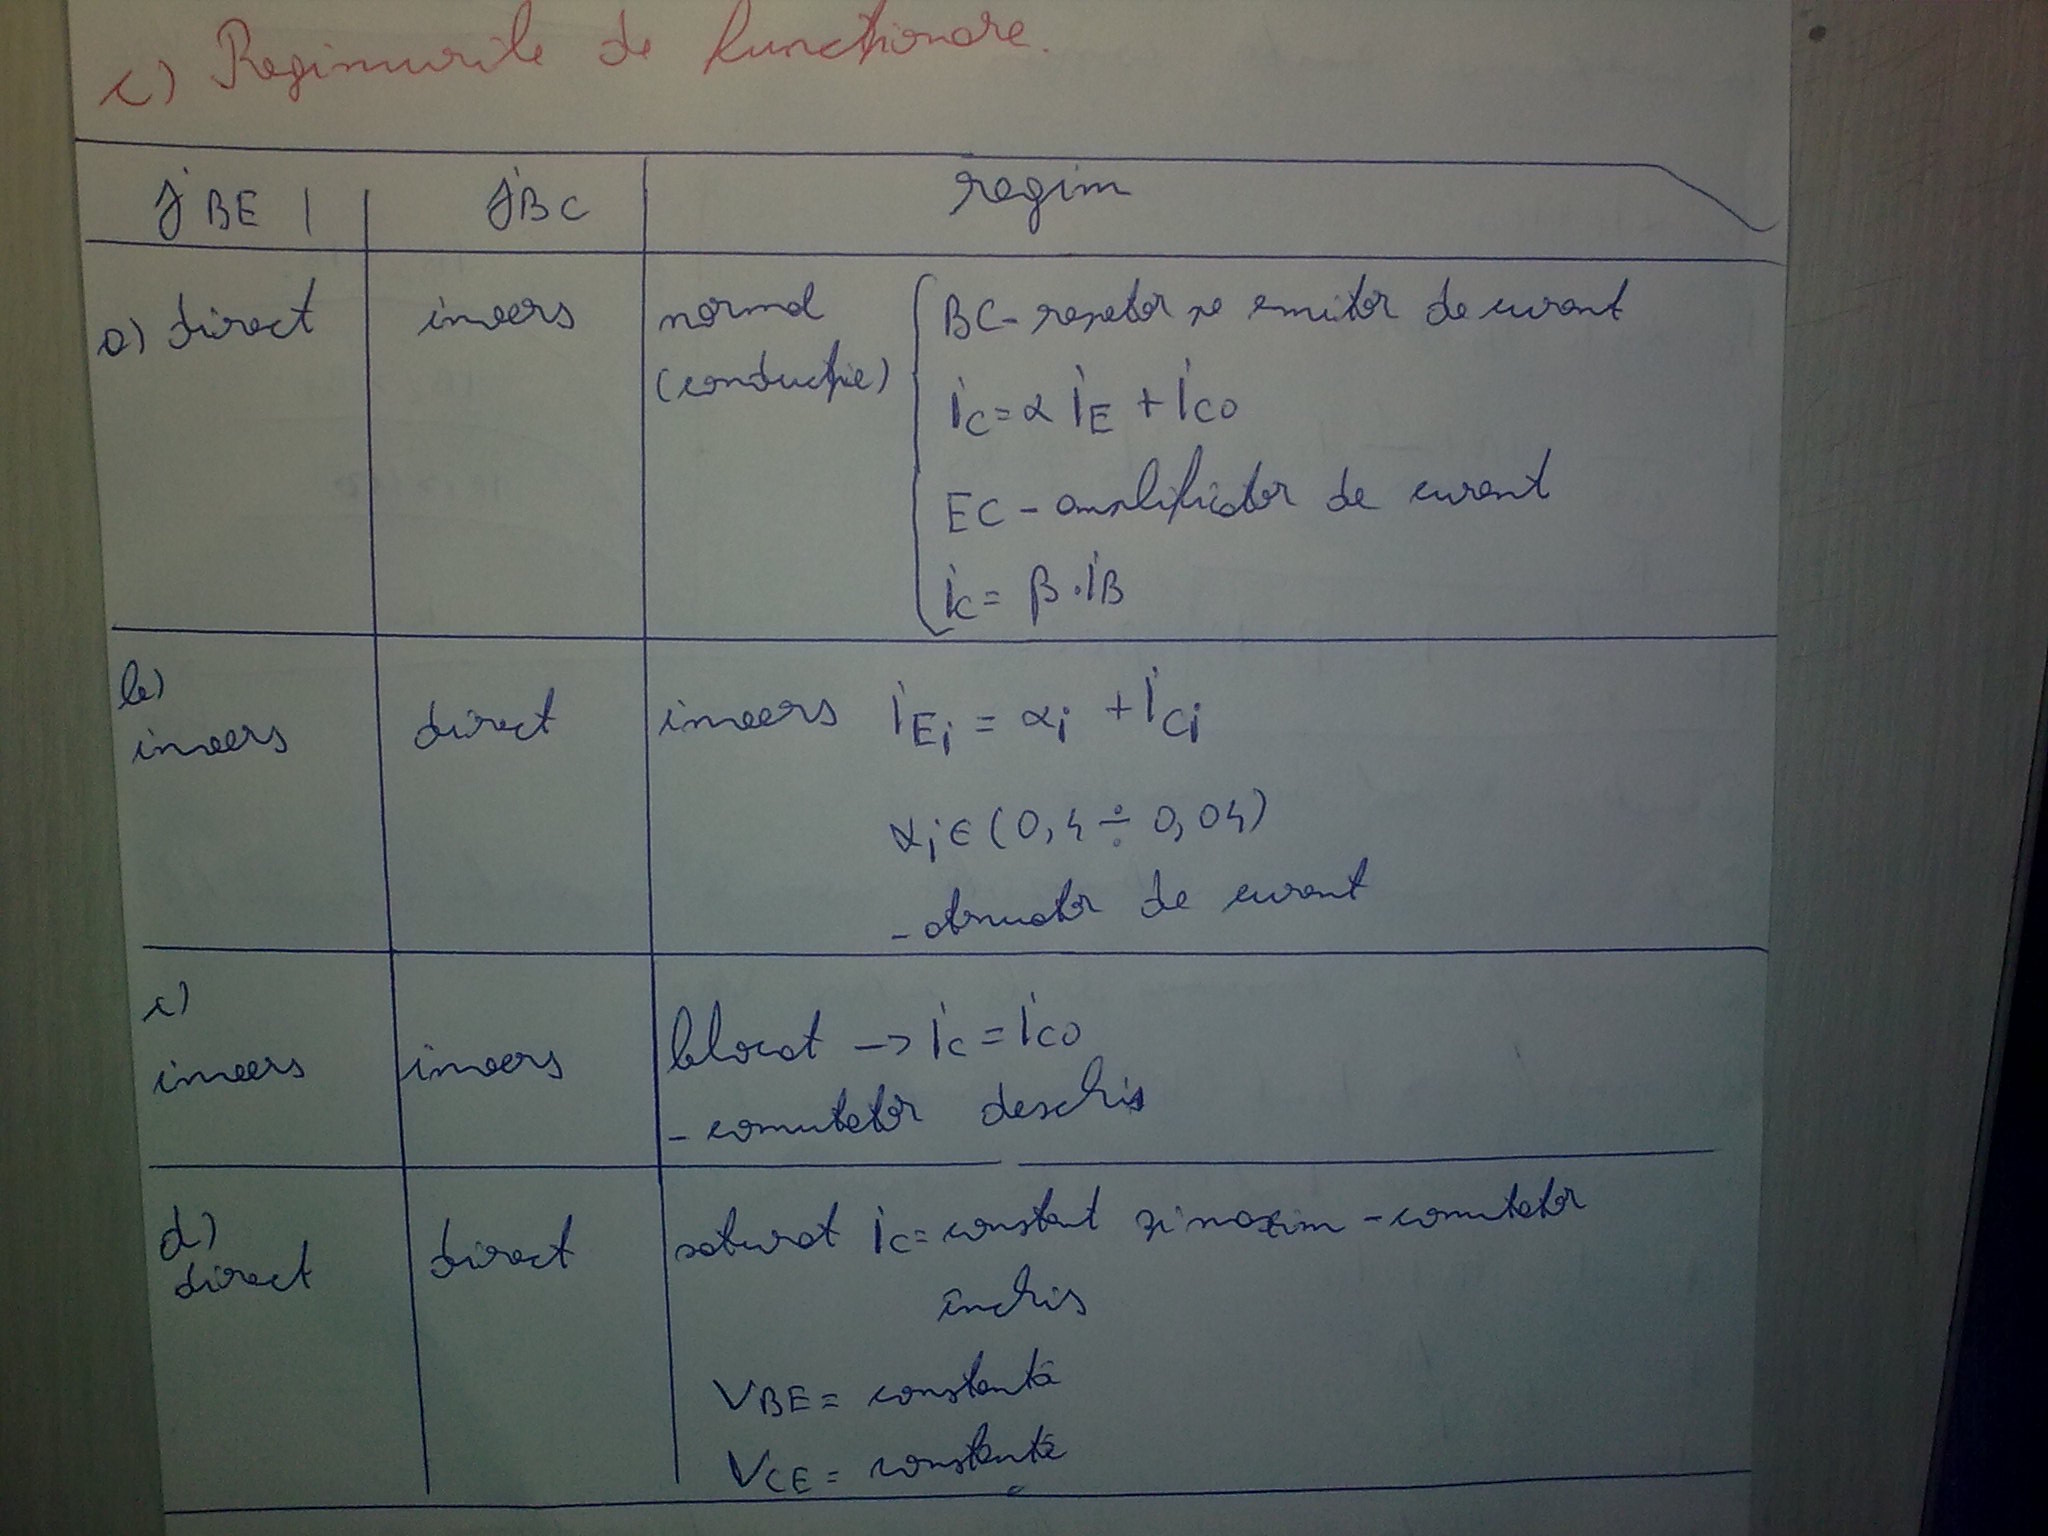 c) Regimurile de funcționare.
jBE | jBC regim
a) direct invers normal BC - repetor pe emitor de curent
(conducție) iC = α iE + iC0
EC - amplificator de curent
iC = β · iB
b)
invers direct invers iEi = αi + iCi
αi ∈ (0,4 ÷ 0,04)
- atenuator de curent
c)
invers invers blocat -> iC = iC0
- comutator deschis
d)
direct direct saturat iC = constant și maxim - comutator
închis
VBE = constantă
VCE = constantă